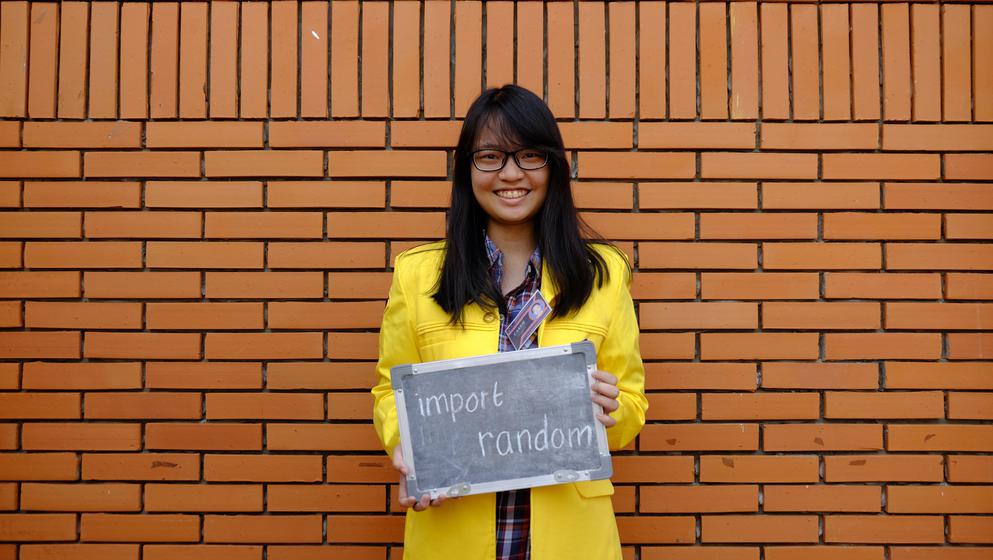 import
random